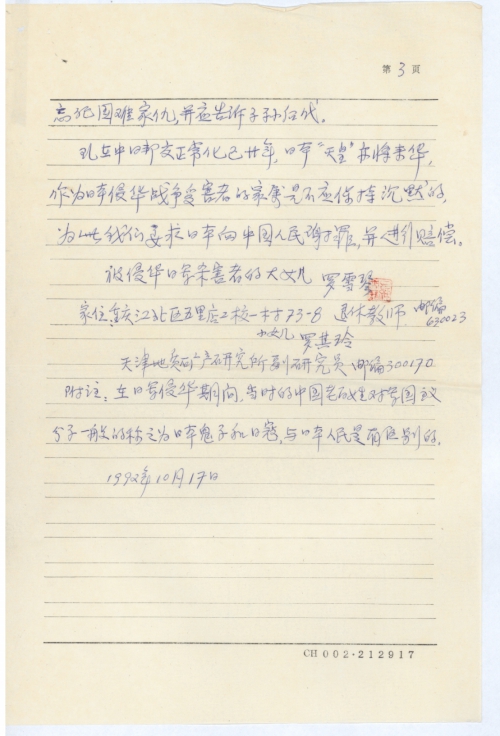 第3页
忘记国难家仇,并应告诉子孙后代。
现在中日邦交正常化已廿年,日本“天皇”亦将来华,
作为日本侵华战争受害者的家属是不应保持沉默的,
为此我们要求日本向中国人民谢罪,并进行赔偿。
被侵华日军杀害者的大女儿 罗雪琴
家住重庆江北区五里店二校一村73-8 退休教师 邮编
630023
小女儿 罗其玲
天津地质矿产研究所副研究员 邮编300170
附注:在日军侵华期间,当时的中国老百姓对军国主义
分子一般的称之为日本鬼子和日寇,与日本人民是有区别的。
1992年10月17日
CH 002·212917